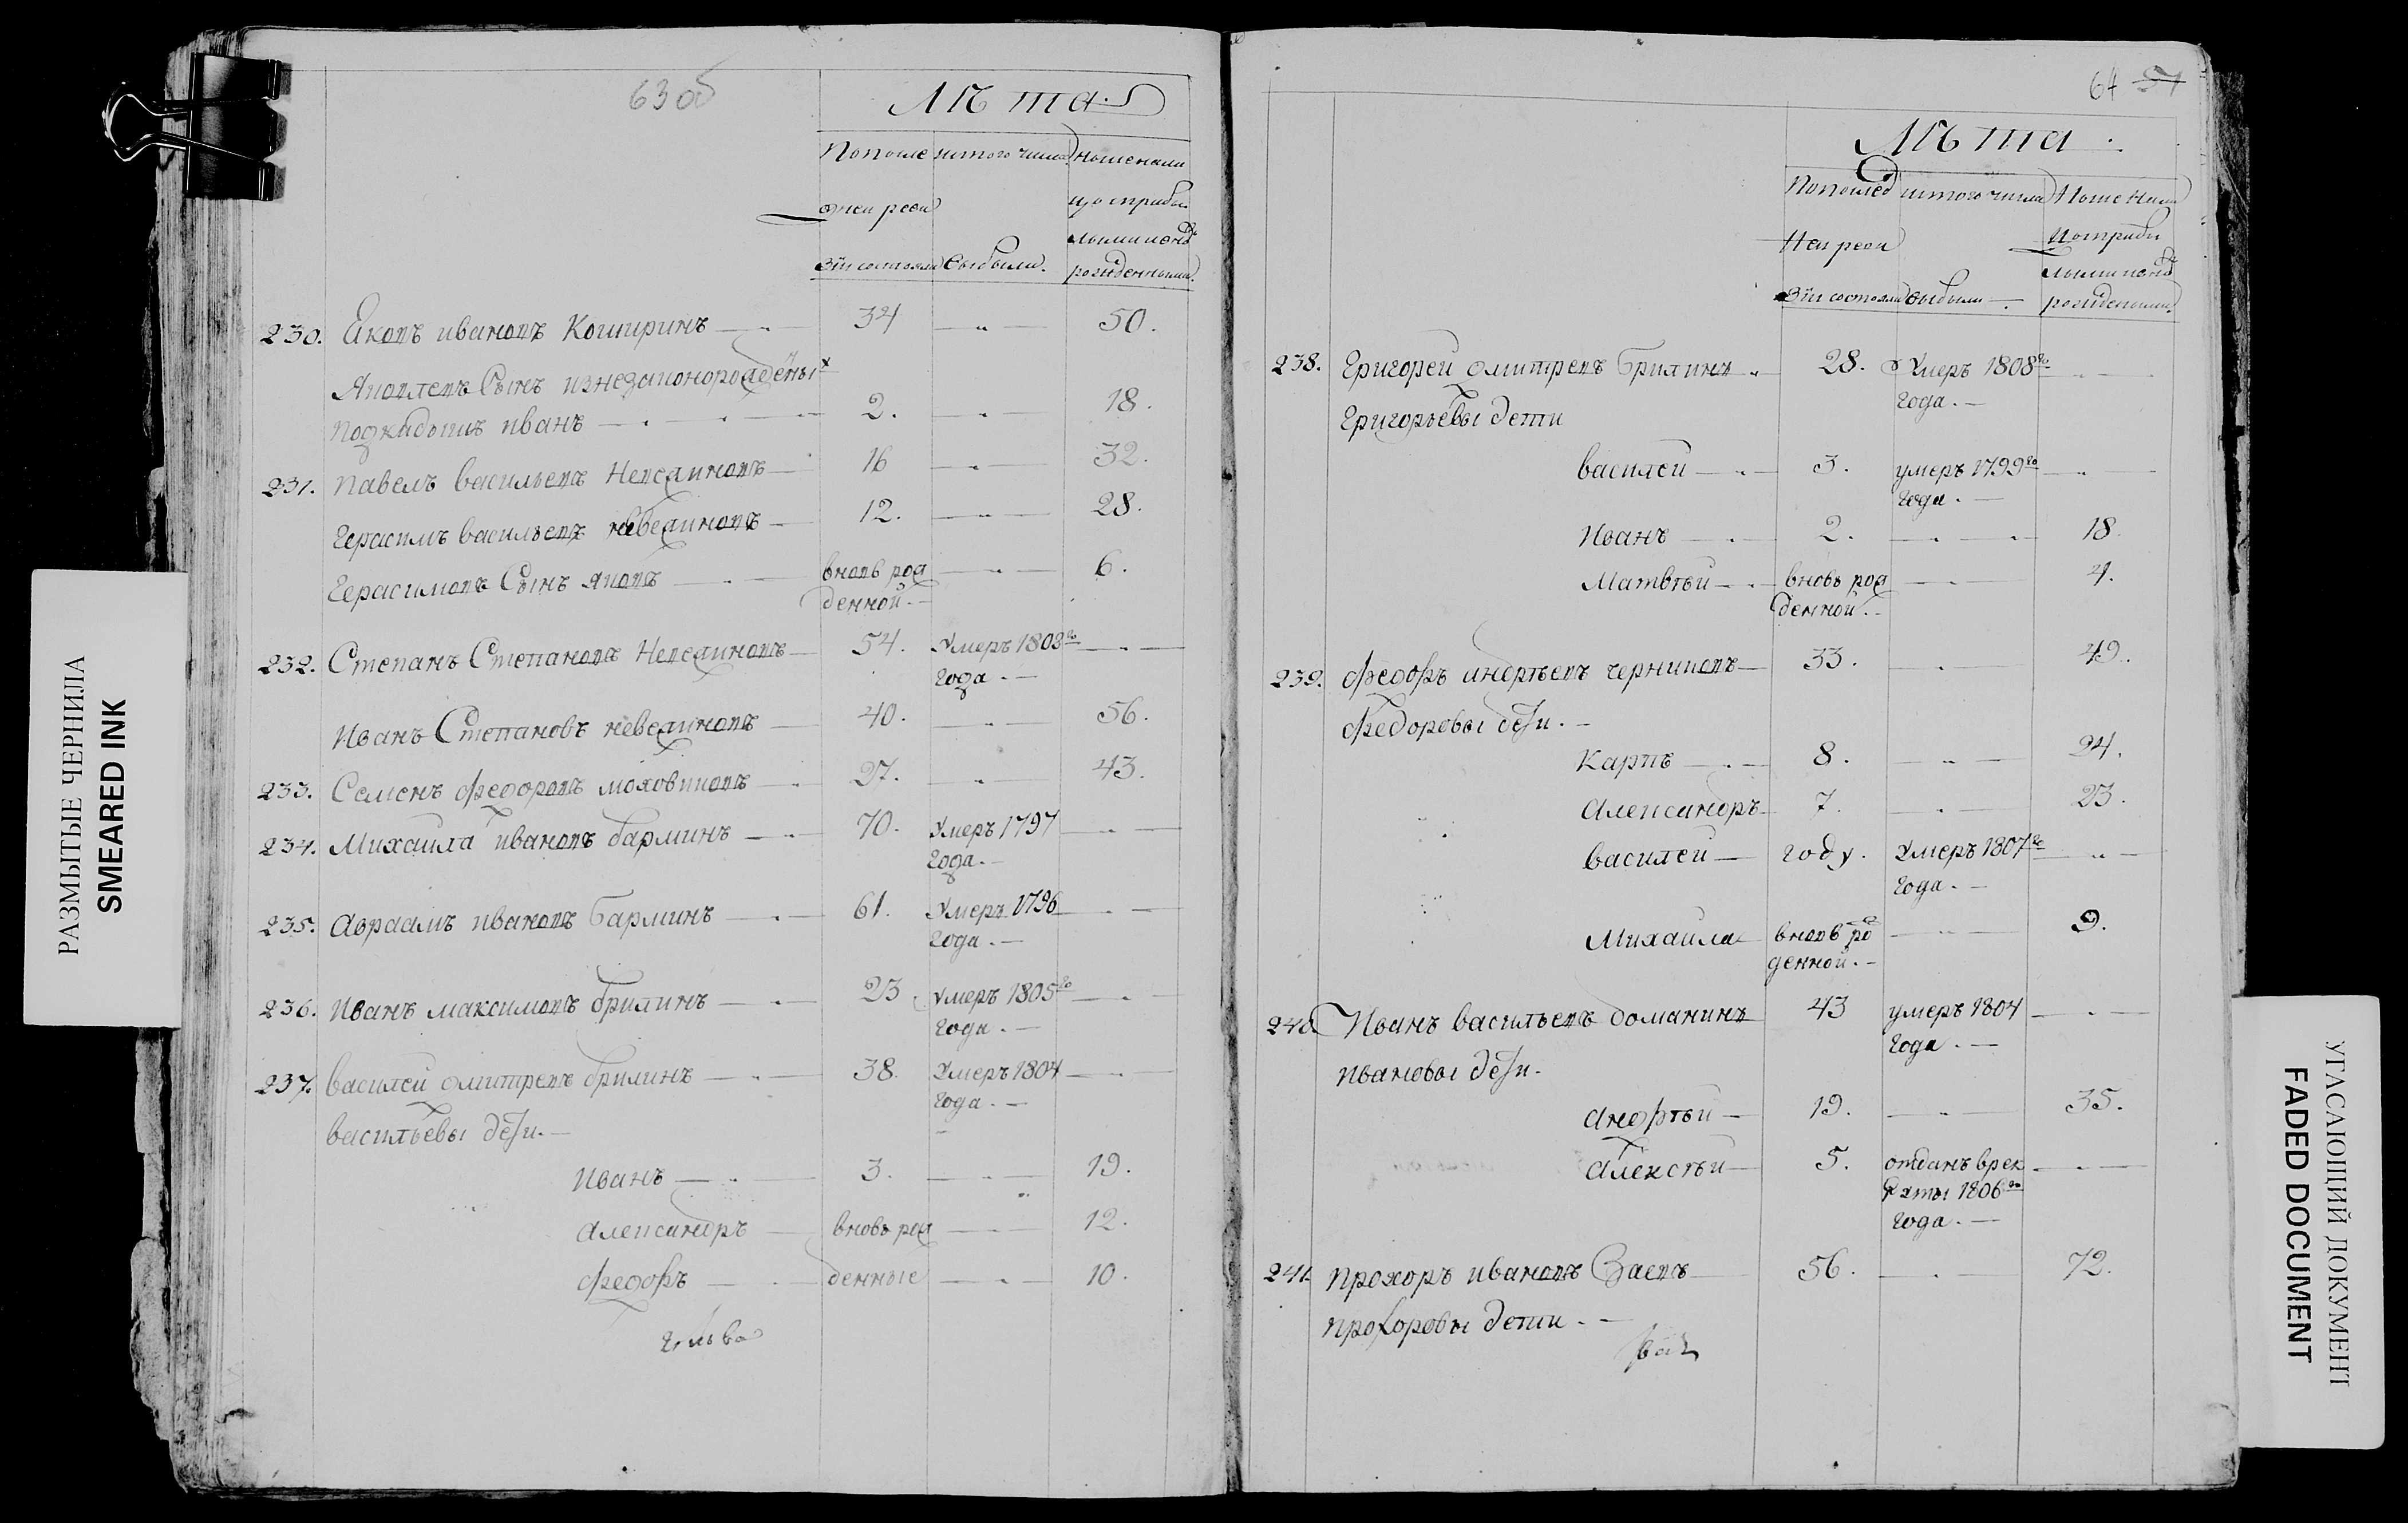 63 об
Лѣта.
Попосле изтого числа Ноне нали
дней реви цо сприбы
лыми иено
зіи состояли выбыли. рожденными.
230. Яковъ ивановъ Коширинъ 34 50.
Яковлевъ Сынъ изнезаконорожденых
Подкидышъ иванъ 2. 18.
231. Павелъ васильевъ Невсаиновъ 16 32.
Герасимъ васильевъ невсаиновъ 12. 28.
Герасимовъ Сынъ яковъ вновь рож 6.
денной.
232. Степанъ Степановъ Невсаиновъ 54. Умеръ 1803го
года.
Иванъ Степановъ невсаиновъ 40. 56.
233. Семенъ федоровъ моховиковъ 27. 43.
234. Михаила ивановъ барминъ 70. Умеръ 1797
года.
235. Авраамъ ивановъ барминъ 61. Умеръ 1796
года.
236. Иванъ максимовъ брилинъ 23 умеръ 1805го
года.
237. василей дмитревъ брилинъ 38. Умеръ 1804
года.
васильевы дети.
Иванъ 3. 19.
Александръ вновь рож 12.
федоръ денные 10.
64 57
Лѣта.
Попослед изтого числа Ноне нали
Ней реви цо сприбы
лыми ионо
зіи состояли выбыли. рожденными.
238. Григорей дмитревъ брилинъ 28. Умеръ 1808го
года.
Григорьевы дети
василей 3. умеръ 1799го
года.
Иванъ 2. 18
Матвѣй вновь рож 4.
денной.
239. федоръ андрѣевъ черниковъ 33. 49.
федоровы дети.
Карпъ 8. 24.
Александръ 7. 23.
василей году. Умеръ 1807го
года.
Михаила вновь рож 9.
денной.
240 Иванъ васильевъ доманинъ 43 умеръ 1804
года.
ивановы дети.
андрѣй 19. 35.
алексѣй 5. отданъ врек
руты 1806го
года.
241. прохоръ ивановъ Заевъ 56. 72.
прохоровы дети.
РАЗМЫТЫЕ ЧЕРНИЛА
SMEARED INK
УГАСАЮЩИЙ ДОКУМЕНТ
FADED DOCUMENT